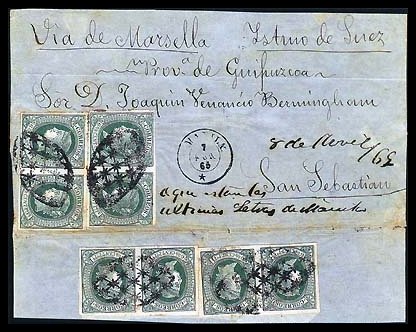 Via de Marsella Istmo de Suez
Prov.ª de Guipuzcoa
Sor D. Joaquin Venancio Bermingham
MANILA
7
65
8 de Abril/65
San Sebastian
aqui estan las
ultimas Letras de
CORREOS
CORREOS
CORREOS
CORREOS